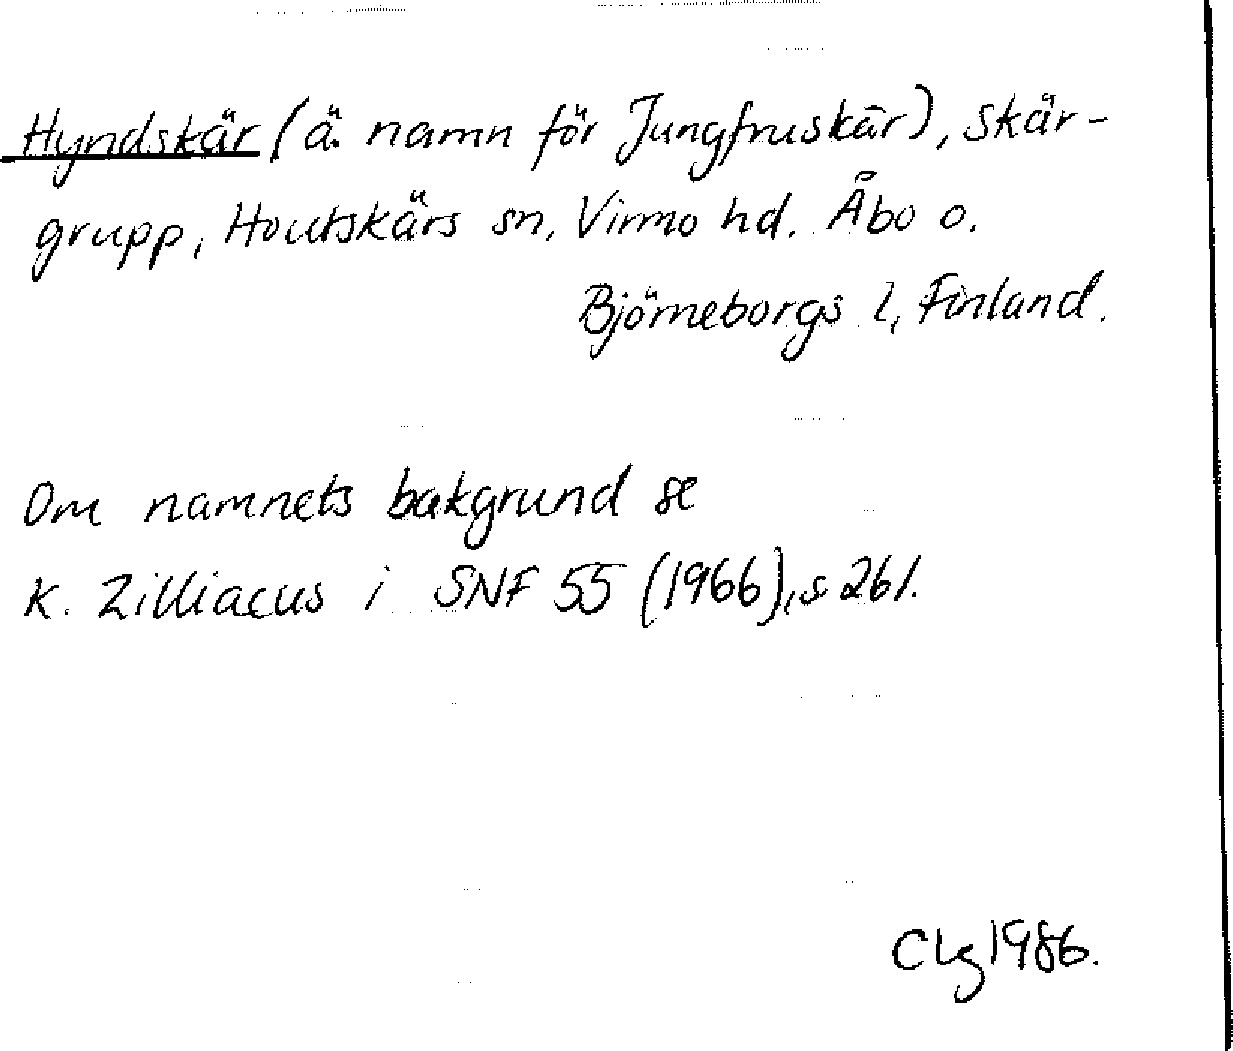 Hyndskär (ä. namn för Jungfruskär), skär-
grupp, Houtskärs sn, Virmo hd. Åbo o.
Björneborgs l, Finland.
Om namnets bakgrund se
K. Zilliacus i SNF 55 (1966), s 261.
CLg 1986.